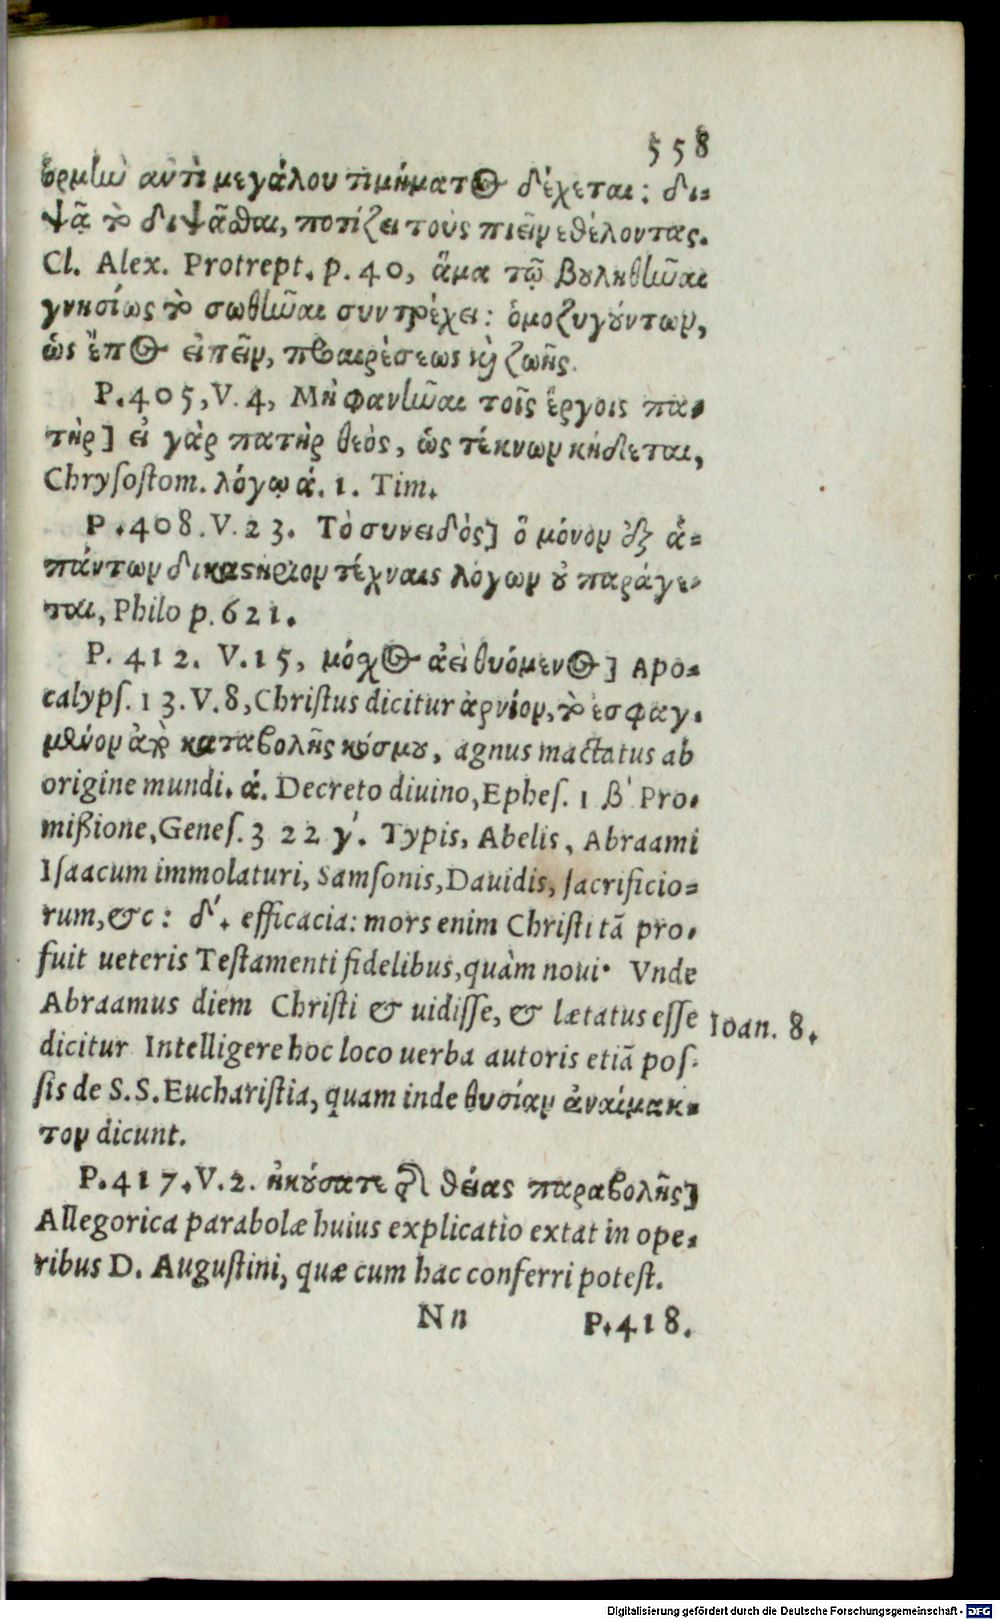 558
ὁρμὴν ἀντὶ μεγάλου τιμήματος δέχεται: δι-
ψᾷ τὸ διψᾶσθαι, ποτίζει τοὺς πιεῖν ἐθέλοντας.
Cl. Alex. Protrept. p. 40, ἅμα τῷ βουληθῆναι
γνησίως τὸ σωθῆναι συντρέχει: ὁμοζυγούντων,
ὡς ἔπος εἰπεῖν, προαιρέσεως καὶ ζωῆς.
P. 405, V. 4, Μὴ φανῆναι τοῖς ἔργοις πα-
τὴρ] εἰ γὰρ πατὴρ θεὸς, ὡς τέκνων κήδεται,
Chrysostom. λόγῳ ά. 1. Tim.
P. 408. V. 23. Τὸ συνειδὸς] ὃ μόνον ἐξ ἁ-
πάντων δικαστήριον τέχναις λόγων οὐ παράγε-
ται, Philo p. 621.
P. 412. V. 15, μόσχος ἀεὶ θυόμενος] Apo-
calyps. 13. V. 8, Christus dicitur ἀρνίον, τὸ ἐσφαγ-
μένον ἀπὸ καταβολῆς κόσμου, agnus mactatus ab
origine mundi. ά. Decreto diuino, Ephes. 1 β' Pro-
mißione, Genes. 3 22 γ'. Typis, Abelis, Abraami
Isaacum immolaturi, Samsonis, Dauidis, sacrificio-
rum, &c: δ'. efficacia: mors enim Christi tā pro-
fuit ueteris Testamenti fidelibus, quàm noui. Vnde
Abraamus diem Christi & uidisse, & lætatus esse
Ioan. 8.
dicitur Intelligere hoc loco uerba autoris etiā pos-
sis de S. S. Eucharistia, quam inde θυσίαν ἀναίμακ-
τον dicunt.
P. 417. V. 2. ἠκούσατε τῆς θείας παραβολῆς]
Allegorica parabolæ huius explicatio extat in ope-
ribus D. Augustini, quæ cum hac conferri potest.
Nn P. 418.
Digitalisierung gefördert durch die Deutsche Forschungsgemeinschaft - DFG